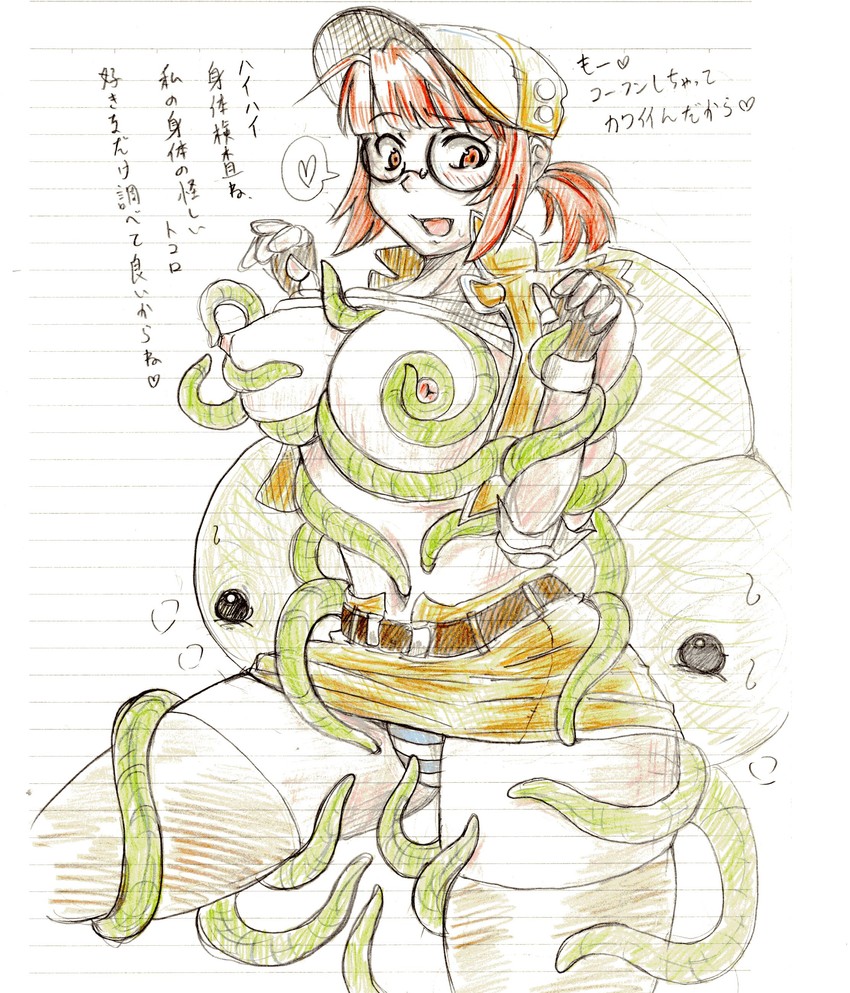 もー♡
コーフンしちゃって
カワイイんだから♡
ハイハイ
身体検査ね、
私の身体の怪しい
トコロ
好きなだけ調べて良いからね♡